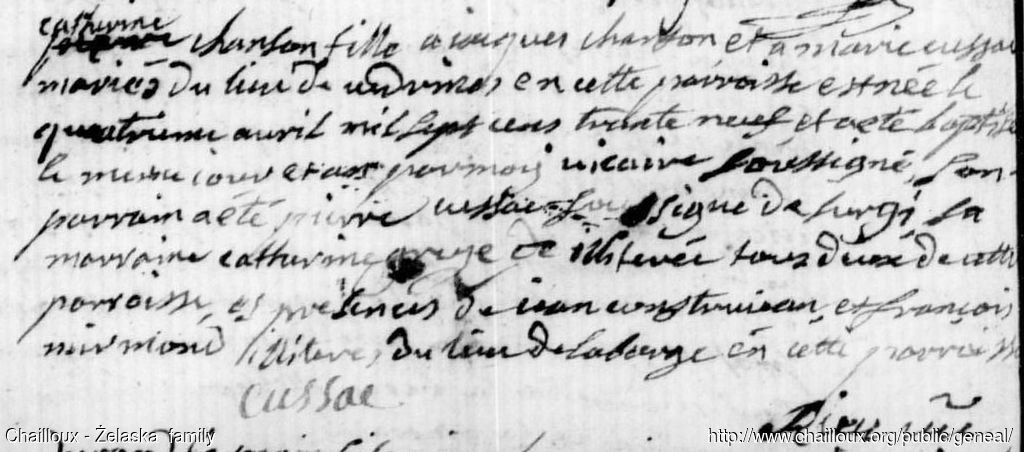 catherine
chanson fille a jacques chanson et a marie cussac
mariés du lieu de vedrines en cette parroisse est née le
quatrieme avril mil sept cens trante neuf et a eté baptisée
le meme jour et an par moy vicaire soussigné, son
parrain a eté pierre cussac soussigné de surgi la
marraine catherine illiterée tous deux de cette
parroisse, es presences de jean et françois
mirmond illiterés du lieu de labarge en cette parroisse
cussac
vic
Chailloux - Żelaska family
http://www.chailloux.org/public/geneal/